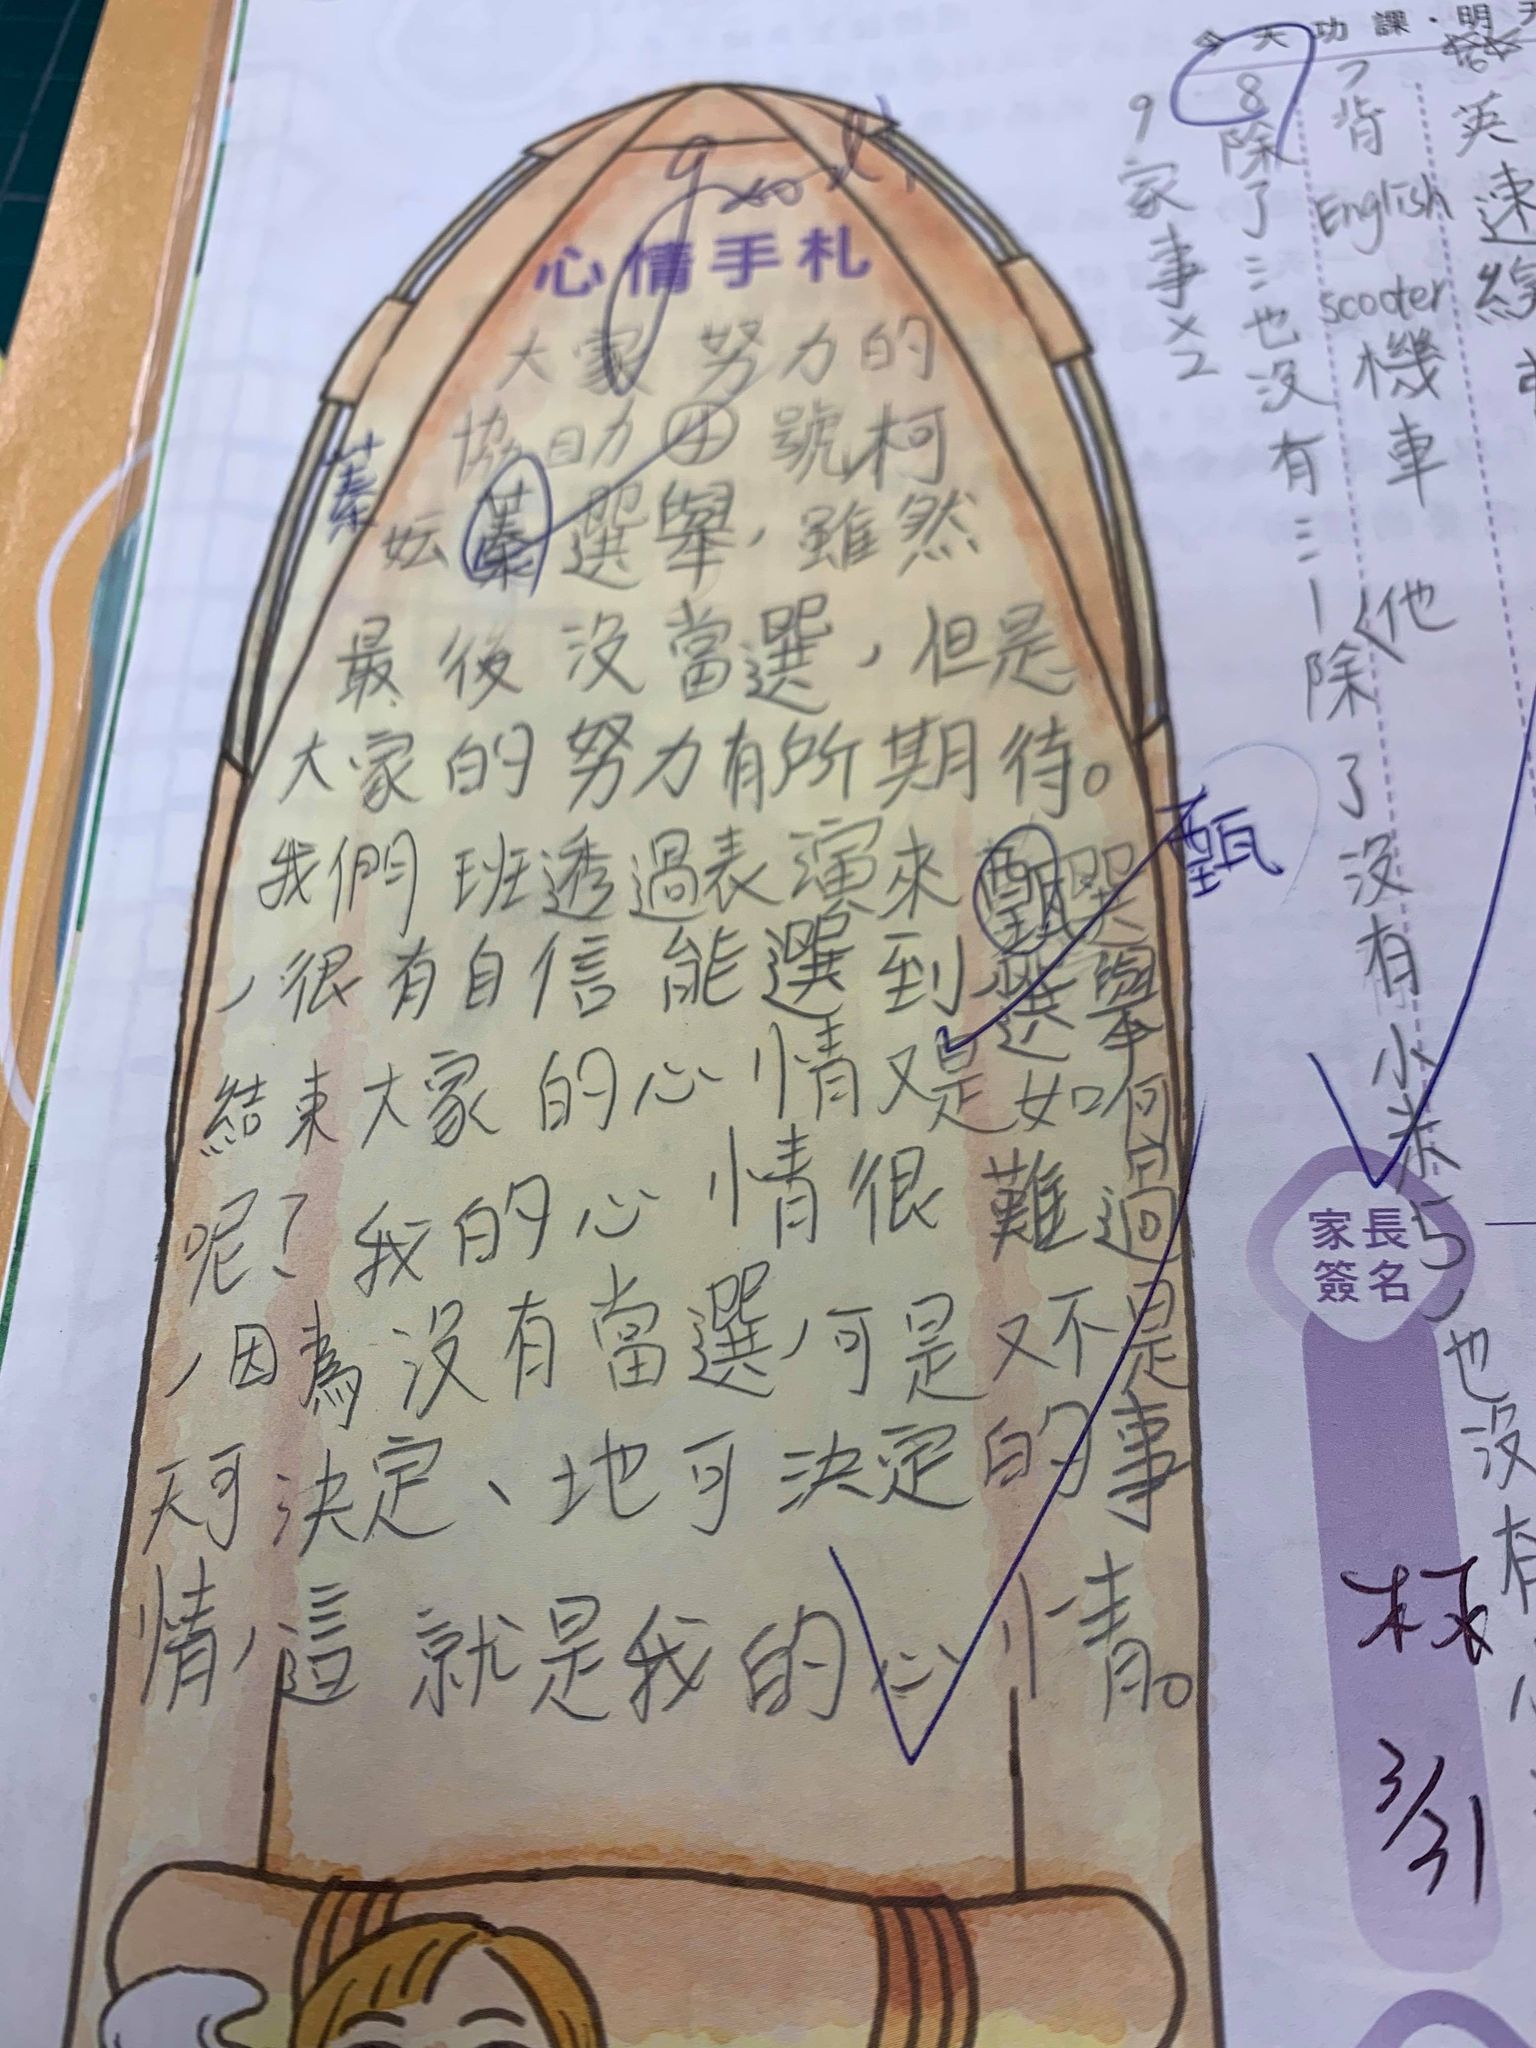 今天功課·明天
英速
7背English scooter機車
他
8除了三也沒有三一除了沒有小米5，也沒有
9家事×2
good!
心情手札
大家努力的
協助④號柯
妘蓁選舉，雖然
蓁
最後沒當選，但是
大家的努力有所期待。
我們班透過表演來甄選
甄
，很有自信能選到，選舉
結束大家的心情又是如何
呢？我的心情很難過
，因為沒有當選，可是又不是
天可決定、地可決定的事
情，這就是我的心情。
家長
簽名
3/31